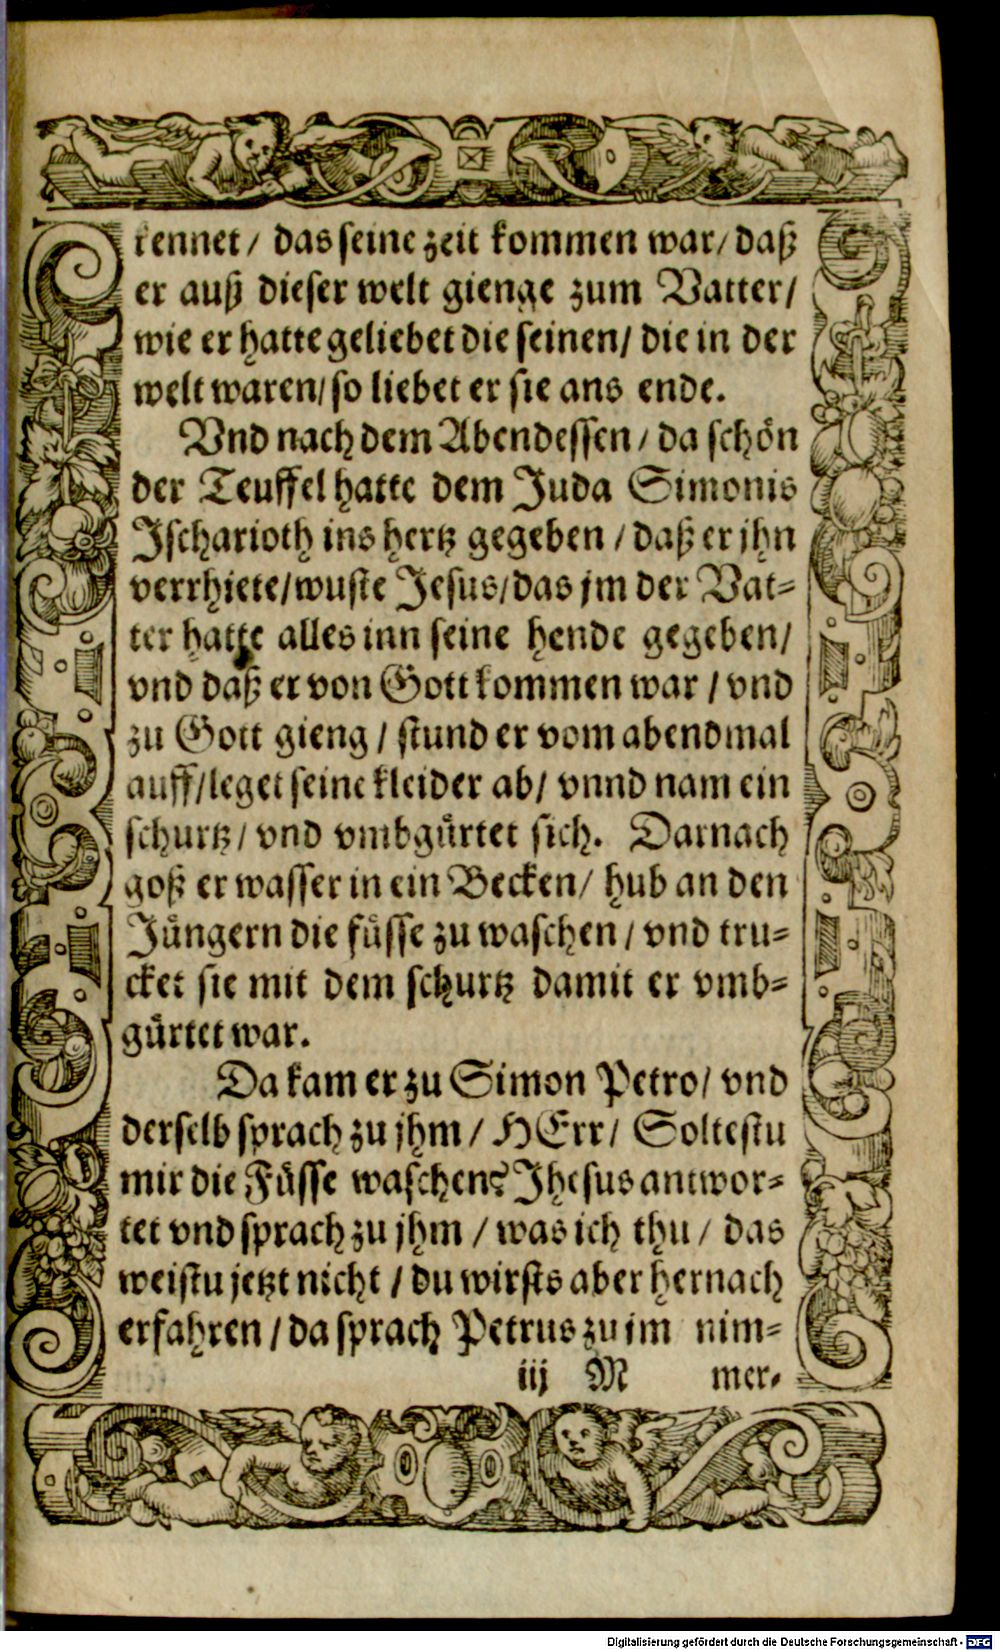 kennet / das seine zeit kommen war / daß
er auß dieser welt gienge zum Vatter /
wie er hatte geliebet die seinen / die in der
welt waren / so liebet er sie ans ende.
Vnd nach dem Abendessen / da schön
der Teuffel hatte dem Juda Simonis
Ischarioth ins hertz gegeben / daß er jhn
verrhiete / wuste Jesus / das jm der Vat-
ter hatte alles inn seine hende gegeben /
vnd daß er von Gott kommen war / vnd
zu Gott gieng / stund er vom abendmal
auff / leget seine kleider ab / vnnd nam ein
schurtz / vnd vmbgürtet sich. Darnach
goß er wasser in ein Becken / hub an den
Jüngern die füsse zu waschen / vnd tru-
cket sie mit dem schurtz damit er vmb-
gürtet war.
Da kam er zu Simon Petro / vnd
derselb sprach zu jhm / HErr / Soltestu
mir die Füsse waschen? Jhesus antwor-
tet vnd sprach zu jhm / was ich thu / das
weistu jetzt nicht / du wirsts aber hernach
erfahren / da sprach Petrus zu im nim-
iij M mer-
Digitalisierung gefördert durch die Deutsche Forschungsgemeinschaft - DFG